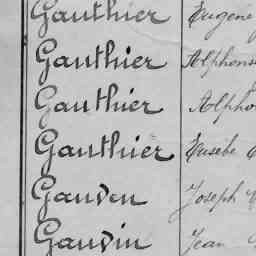 Gauthier Eugène
Gauthier Alphons
Gauthier Alpho
Gauthier Eusèbe
Gauven Joseph
Gauvin Jean